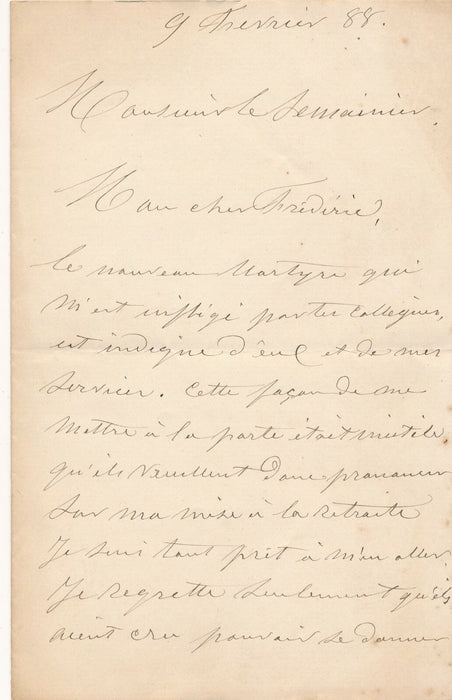 9 Fevrier 88.
Monsieur le Semainier.
Mon cher Frédéric,
Le nouveau Martyre qui
m'est infligé par tes Collègues,
est indigne d'eux et de mes
services. Cette façon de me
mettre à la porte était inutile,
qu'ils veuillent donc prononcer
sur ma mise à la retraite
Je suis tout prêt à m'en aller.
Je regrette seulement qu'ils
aient cru pouvoir se donner